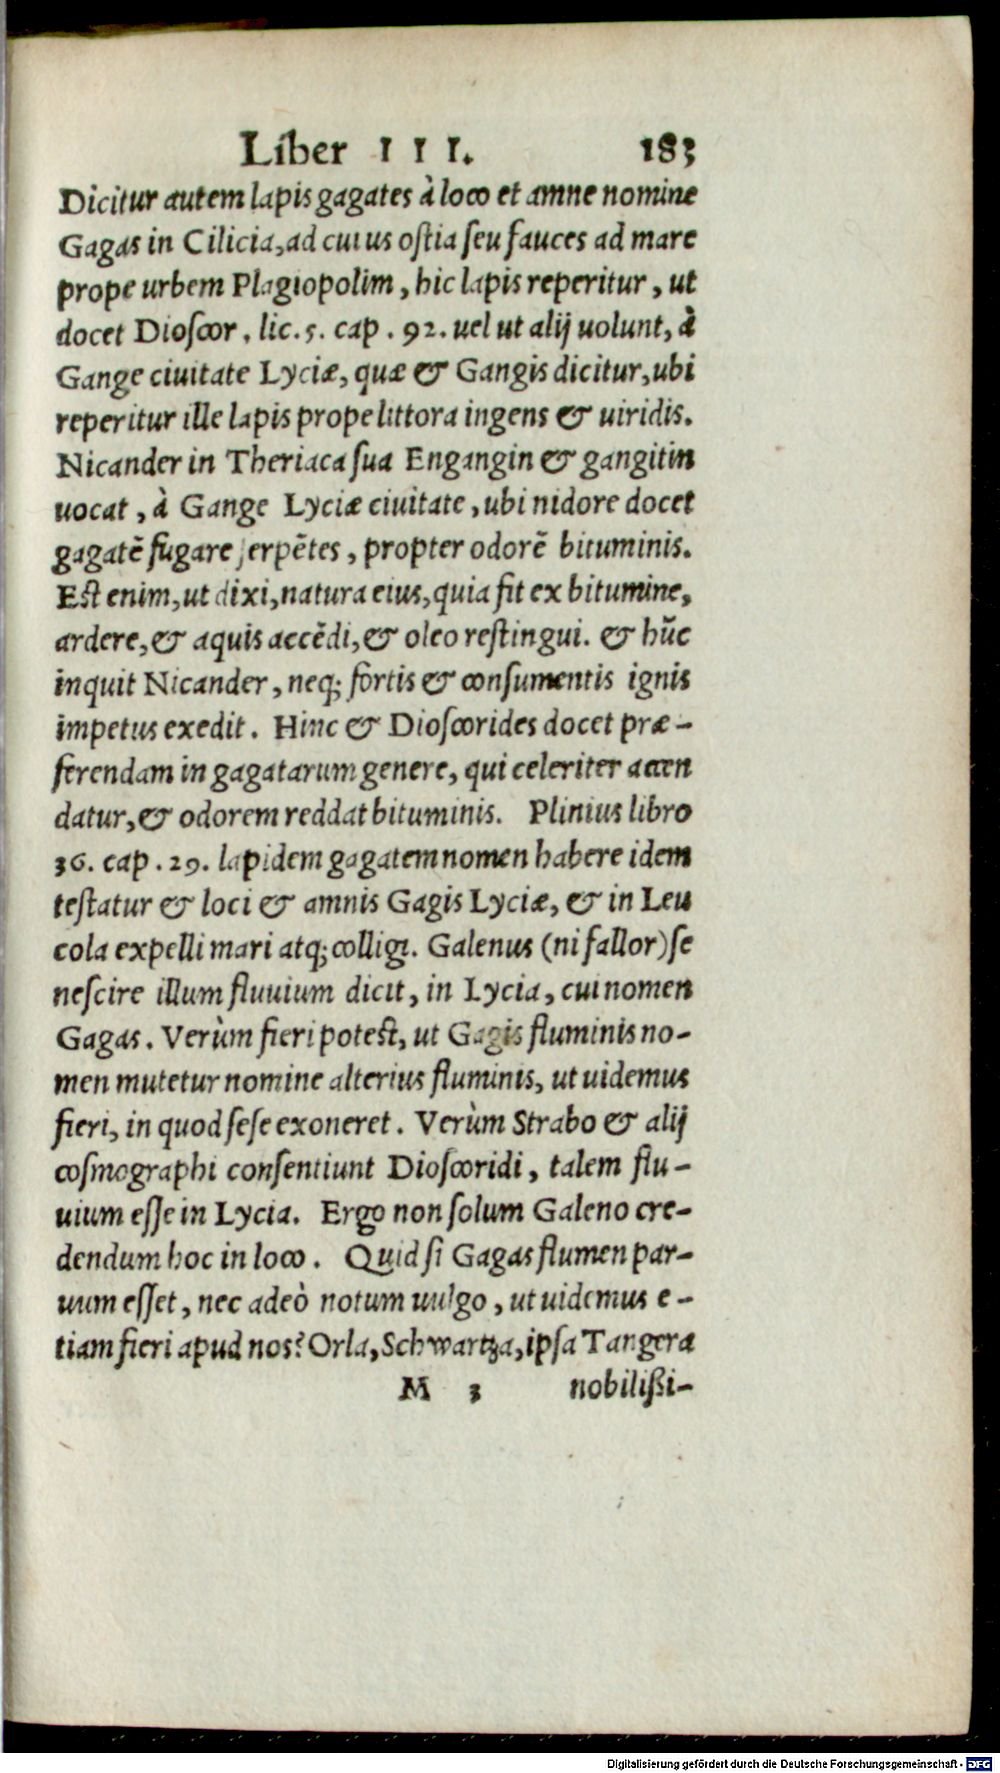 Liber III. 183
Dicitur autem lapis gagates à loco et amne nomine
Gagas in Cilicia, ad cuius ostia seu fauces ad mare
prope urbem Plagiopolim, hic lapis reperitur, ut
docet Dioscor, lic. 5. cap. 92. uel ut alij uolunt, à
Gange ciuitate Lyciæ, quæ & Gangis dicitur, ubi
reperitur ille lapis prope littora ingens & uiridis.
Nicander in Theriaca sua Engangin & gangitin
uocat, à Gange Lyciæ ciuitate, ubi nidore docet
gagatē fugare serpētes, propter odorē bituminis.
Est enim, ut dixi, natura eius, quia fit ex bitumine,
ardere, & aquis accēdi, & oleo restingui. & hūc
inquit Nicander, neq; fortis & consumentis ignis
impetus exedit. Hinc & Dioscorides docet præ-
ferendam in gagatarum genere, qui celeriter accen
datur, & odorem reddat bituminis. Plinius libro
36. cap. 29. lapidem gagatem nomen habere idem
testatur & loci & amnis Gagis Lyciæ, & in Leu
cola expelli mari atq; colligi. Galenus (ni fallor) se
nescire illum fluuium dicit, in Lycia, cui nomen
Gagas. Verùm fieri potest, ut Gagis fluminis no-
men mutetur nomine alterius fluminis, ut uidemus
fieri, in quod sese exoneret. Verùm Strabo & alij
cosmographi consentiunt Dioscoridi, talem flu-
uium esse in Lycia. Ergo non solum Galeno cre-
dendum hoc in loco. Quid si Gagas flumen par-
uum esset, nec adeò notum uulgo, ut uidemus e-
tiam fieri apud nos? Orla, Schwartza, ipsa Tangera
M 3 nobilißi-
Digitalisierung gefördert durch die Deutsche Forschungsgemeinschaft - DFG